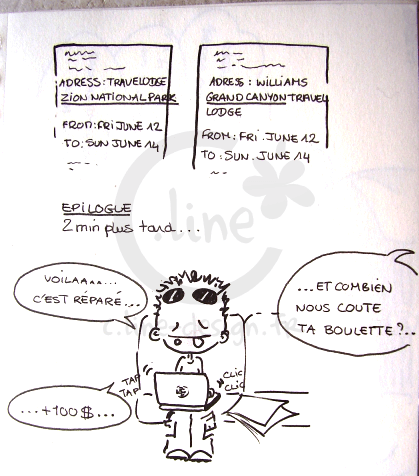 ADRESS : TRAVELODGE
ZION NATIONAL PARK
FROM : FRI JUNE 12
TO : SUN JUNE 14
ADRESS : WILLIAMS
GRAND CANYON TRAVEL
LODGE
FROM : FRI . JUNE 12
TO : SUN . JUNE 14
EPILOGUE
2 min plus tard...
VOILAAAA....
C'EST RÉPARÉ...
...ET COMBIEN
NOUS COUTE
TA BOULETTE?..
TAP
TAP
CLIC
CLIC
...+100$...
c.line